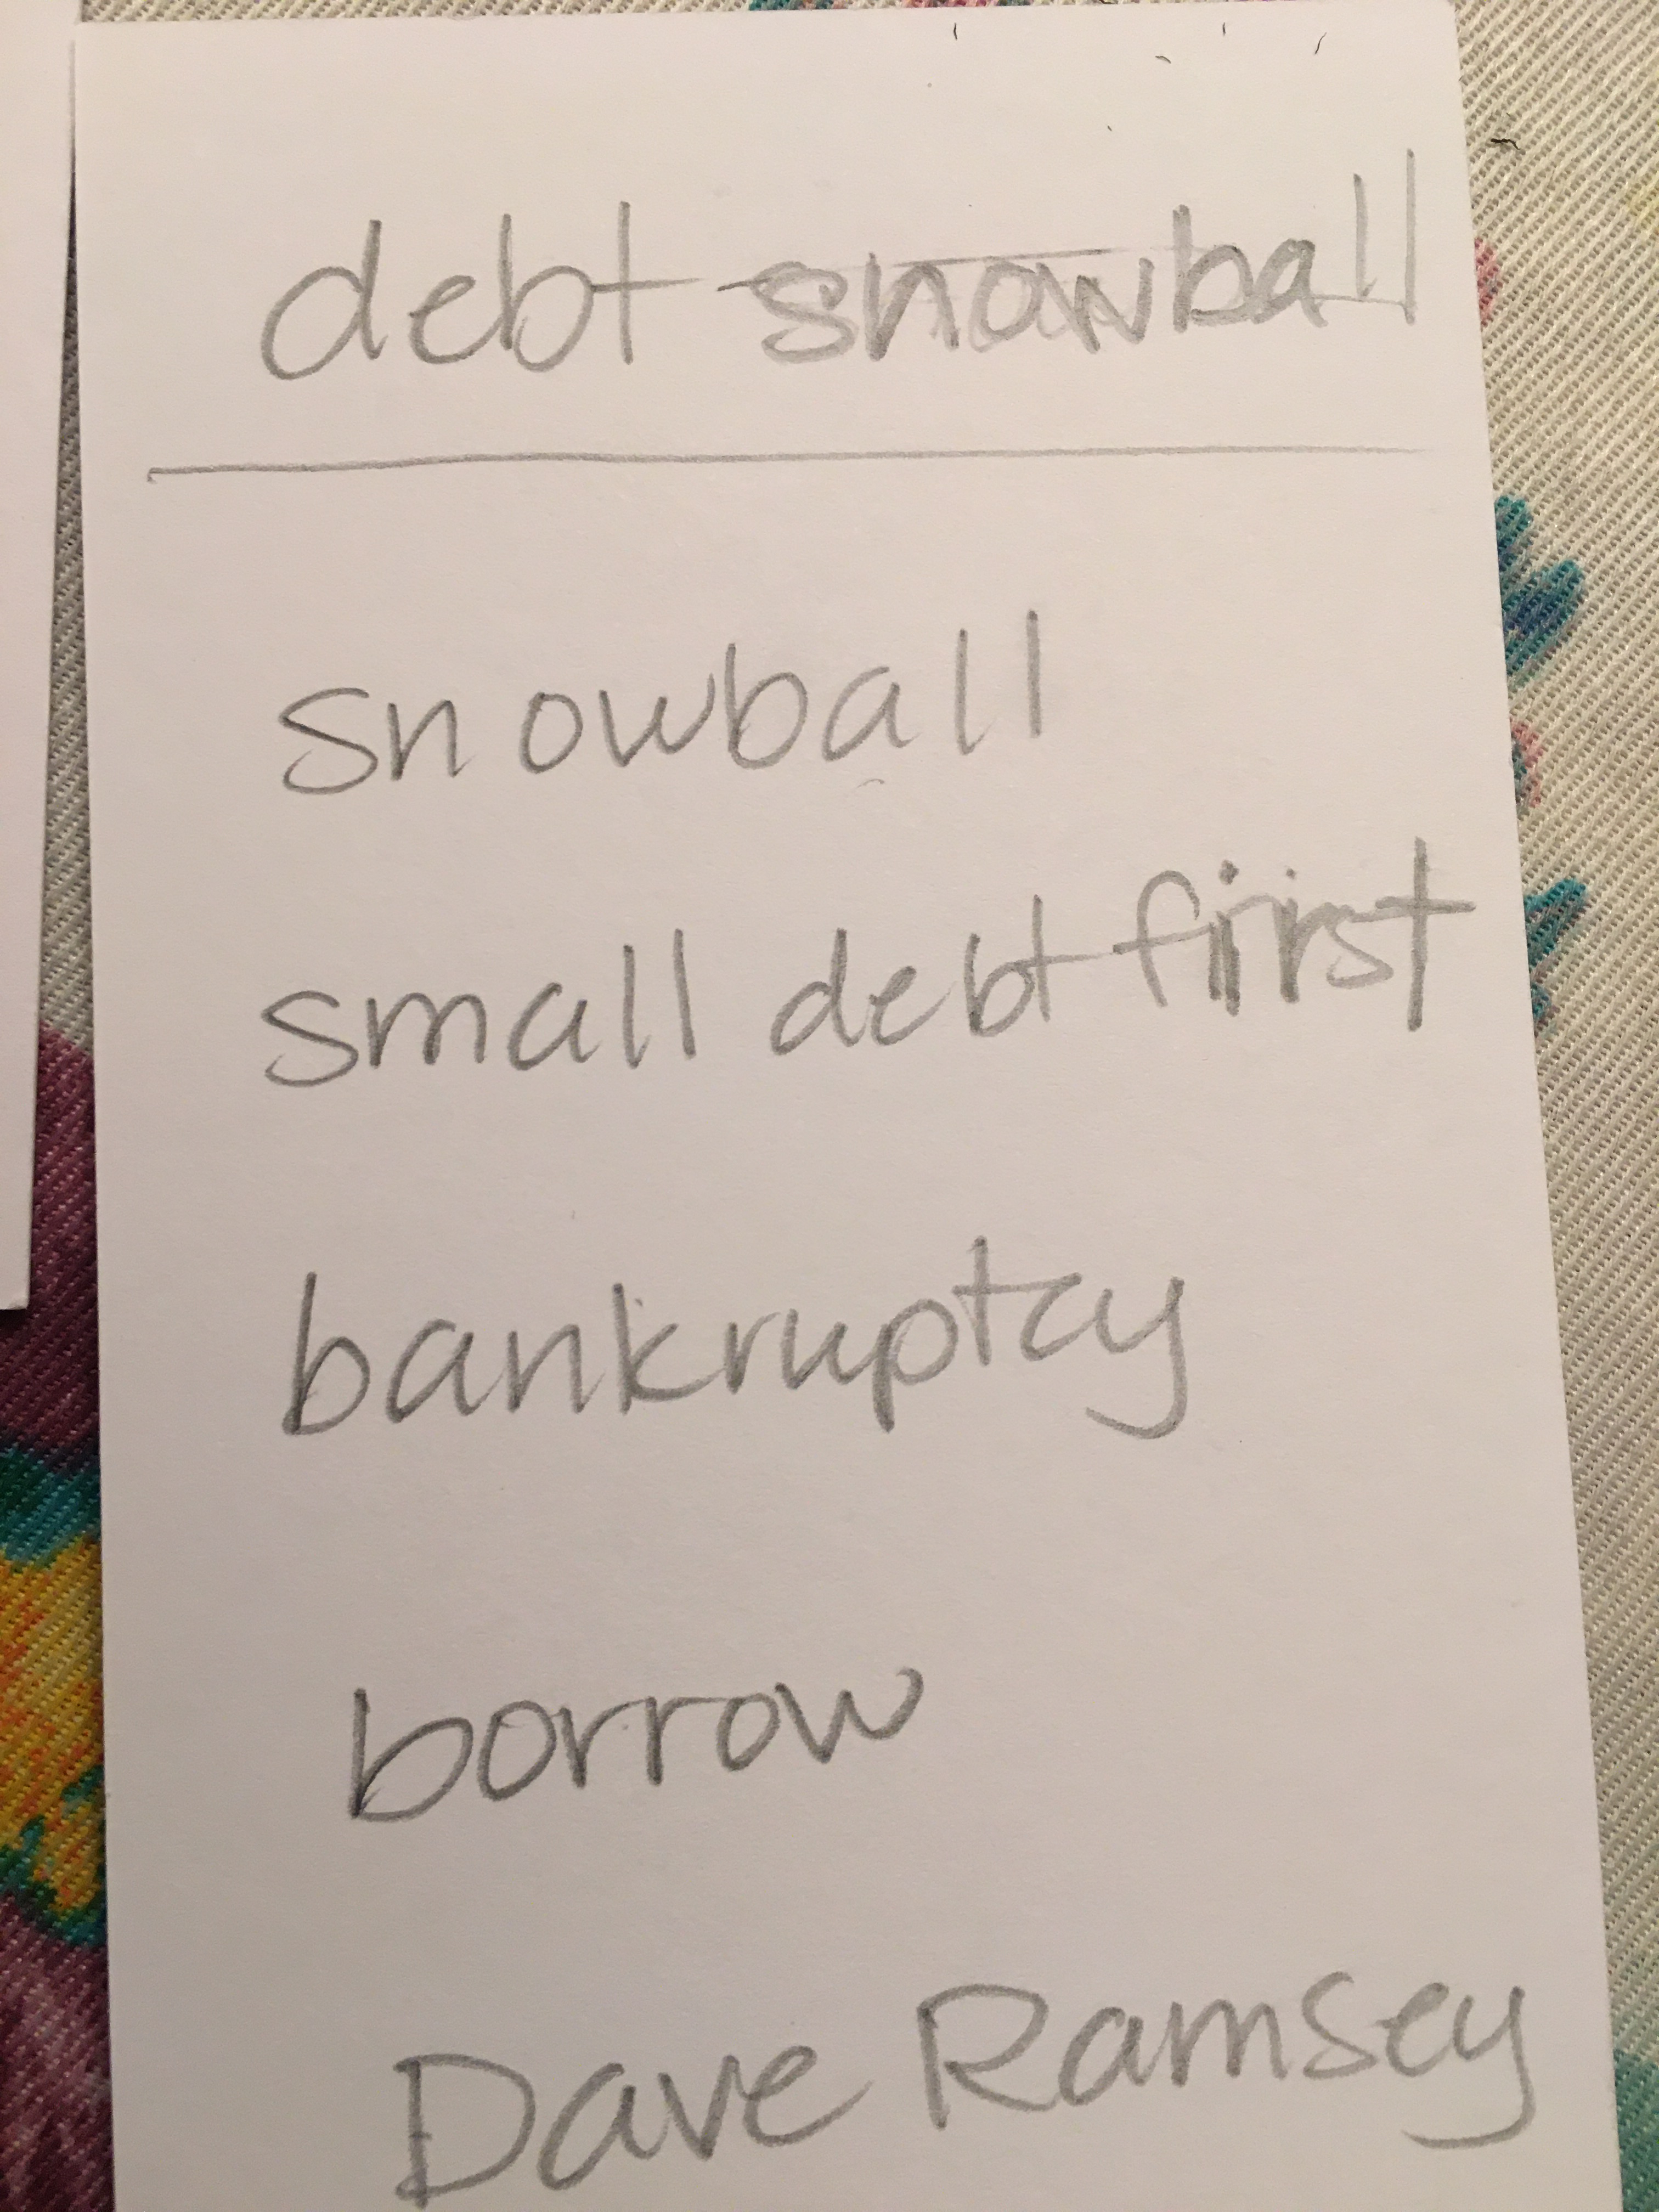 debt snowball
snowball
small debt first
bankruptcy
borrow
Dave Ramsey